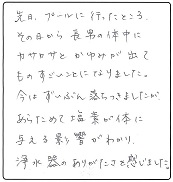 先日、プールに行ったところ、
その日から長男の体中に
カサカサとかゆみが出て
ものすごいことになりました。
今はずいぶん落ちつきましたが、
あらためて塩素が体に
与える影響がわかり、
浄水器のありがたさを感じました。